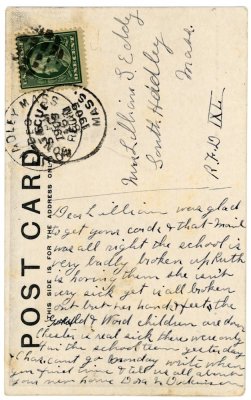 POST CARD
THIS SIDE IS FOR THE ADDRESS ONLY
MASS.
1909
Miss Lillian S. Eddy
South Hadley
Mass.
R.F.D.
Dear Lillian was glad
to get your cards & that mail
was all right the school is
very badly broken up Ruth
is having them she isn't
very sick yet is all broken
out but her hands & feet the
& Wood children are
Chester is real sick there were only
in the school room yesterday
Chas. cant go Monday write when
you first time & tell us all about
your new home Dora